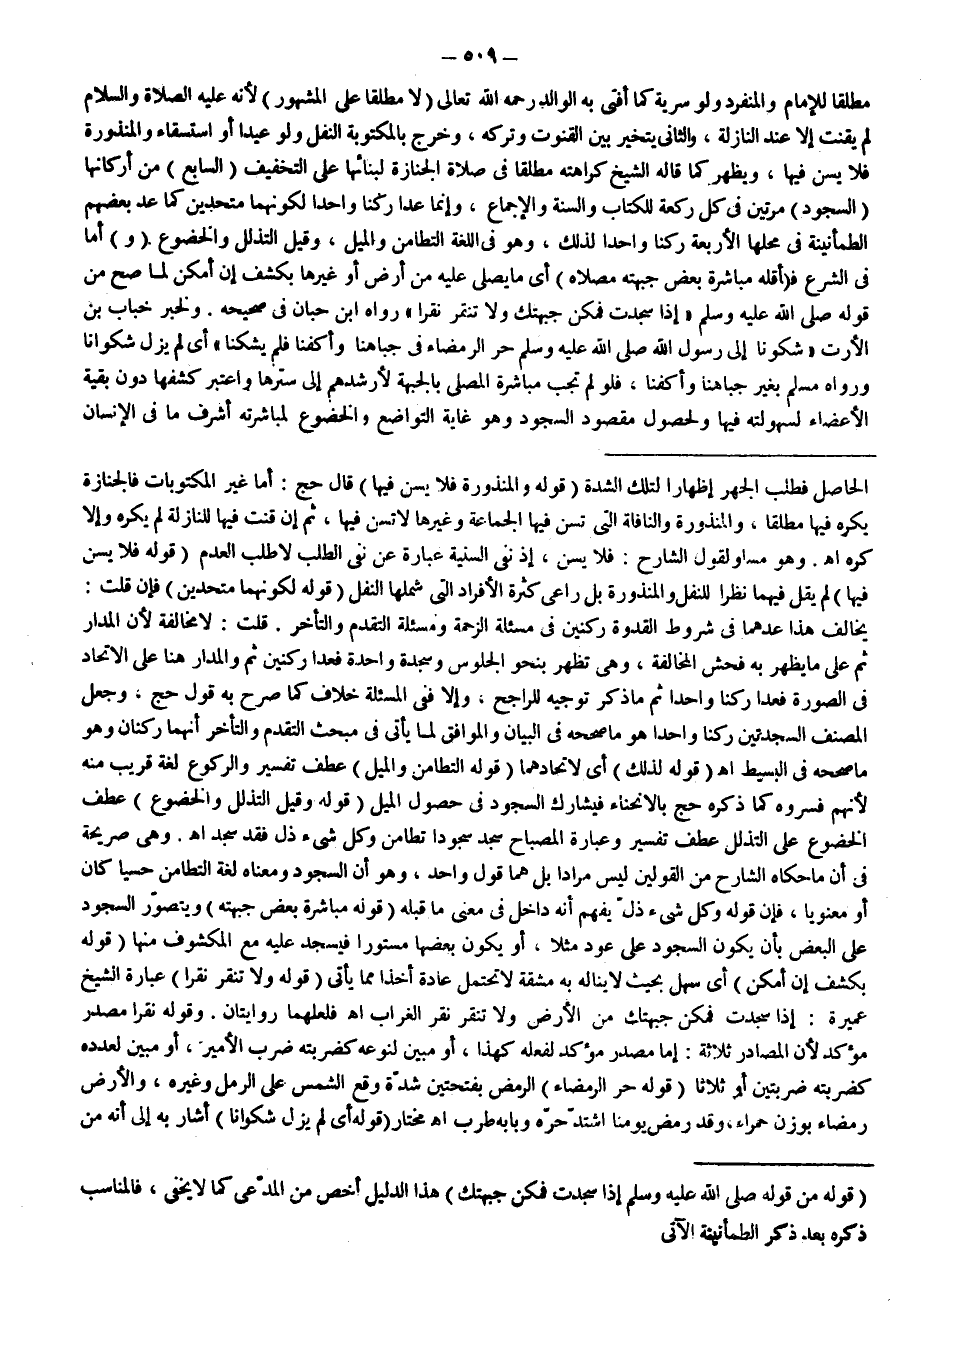 – ٥٠٩ –
مطلقا للإمام والمنفرد ولو سرية كما أفتى به الوالد رحمه الله تعالى ( لا مطلقا على المشهور ) لأنه عليه الصلاة والسلام
لم يقنت إلا عند النازلة ، والثانى يتخير بين القنوت وتركه ، وخرج بالمكتوبة النفل ولو عيدا أو استسقاء والمنذورة
فلا يسن فيها ، ويظهر كما قاله الشيخ كراهته مطلقا فى صلاة الجنازة لبنائها على التخفيف ( السابع ) من أركانها
( السجود ) مرتين فى كل ركعة للكتاب والسنة والإجماع ، وإنما عدا ركنا واحدا لكونهما متحدين كما عد بعضهم
الطمأنينة فى محلها الأربعة ركنا واحدا لذلك ، وهو فى اللغة التطامن والميل ، وقيل التذلل والخضوع . ( و ) أما
فى الشرع ف‍( أقله مباشرة بعض جبهته مصلاه ) أى مايصلى عليه من أرض أو غيرها بكشف إن أمكن لما صح من
قوله صلى الله عليه وسلم « إذا سجدت فمكن جبهتك ولا تنقر نقرا » رواه ابن حبان فى صحيحه . ولخبر خباب بن
الأرت « شكونا إلى رسول الله صلى الله عليه وسلم حر الرمضاء فى جباهنا وأكفنا فلم يشكنا » أى لم يزل شكوانا
ورواه مسلم بغير جباهنا وأكفنا ، فلو لم تجب مباشرة المصلى بالجبهة لأرشدهم إلى سترها واعتبر كشفها دون بقية
الأعضاء لسهولته فيها ولحصول مقصود السجود وهو غاية التواضع والخضوع لمباشرته أشرف ما فى الإنسان
الحاصل فطلب الجهر إظهارا لتلك الشدة ( قوله والمنذورة فلا يسن فيها ) قال حج : أما غير المكتوبات فالجنازة
يكره فيها مطلقا ، والمنذورة والنافلة التى تسن فيها الجماعة وغيرها لاتسن فيها ، ثم إن قنت فيها للنازلة لم يكره وإلا
كره اه . وهو مساو لقول الشارح : فلا يسن ، إذ نفى السنية عبارة عن نفى الطلب لاطلب العدم ( قوله فلا يسن
فيها ) لم يقل فيهما نظرا للنفل والمنذورة بل راعى كثرة الأفراد التى شملها النفل ( قوله لكونهما متحدين ) فإن قلت :
يخالف هذا عدهما فى شروط القدوة ركنين فى مسئلة الزحمة ومسئلة التقدم والتأخر . قلت : لامخالفة لأن المدار
ثم على مايظهر به فحش المخالفة ، وهى تظهر بنحو الجلوس وسجدة واحدة فعدا ركنين ثم والمدار هنا على الاتحاد
فى الصورة فعدا ركنا واحدا ثم ماذكر توجيه للراجح ، وإلا ففى المسئلة خلاف كما صرح به قول حج ، وجعل
المصنف السجدتين ركنا واحدا هو ماصححه فى البيان والموافق لما يأتى فى مبحث التقدم والتأخر أنهما ركنان وهو
ماصححه فى البسيط اه ( قوله لذلك ) أى لاتحادهما ( قوله التطامن والميل ) عطف تفسير والركوع لغة قريب منه
لأنهم فسروه كما ذكره حج بالانحناء فيشارك السجود فى حصول الميل ( قوله وقيل التذلل والخضوع ) عطف
الخضوع على التذلل عطف تفسير وعبارة المصباح سجد سجودا تطامن وكل شىء ذل فقد سجد اه . وهى صريحة
فى أن ماحكاه الشارح من القولين ليس مرادا بل هما قول واحد ، وهو أن السجود ومعناه لغة التطامن حسيا كان
أو معنويا ، فإن قوله وكل شىء ذلّ يفهم أنه داخل فى معنى ما قبله ( قوله مباشرة بعض جبهته ) ويتصوّر السجود
على البعض بأن يكون السجود على عود مثلا ، أو يكون بعضها مستورا فيسجد عليه مع المكشوف منها ( قوله
بكشف إن أمكن ) أى سهل بحيث لايناله به مشقة لاتحتمل عادة أخذا مما يأتى ( قوله ولا تنقر نقرا ) عبارة الشيخ
عميرة : إذا سجدت فمكن جبهتك من الأرض ولا تنقر نقر الغراب اه فلعلهما روايتان . وقوله نقرا مصدر
مؤكد لأن المصادر ثلاثة : إما مصدر مؤكد لفعله كهذا ، أو مبين لنوعه كضربته ضرب الأمير ، أو مبين لعدده
كضربته ضربتين أو ثلاثا ( قوله حر الرمضاء ) الرمض بفتحتين شدّة وقع الشمس على الرمل وغيره ، والأرض
رمضاء بوزن حمراء ، وقد رمض يومنا اشتدّ حرّه وبابه طرب اه مختار ( قوله أى لم يزل شكوانا ) أشار به إلى أنه من
( قوله من قوله صلى الله عليه وسلم إذا سجدت فمكن جبهتك ) هذا الدليل أخص من المدّعى كما لايخفى ، فالمناسب
ذكره بعد ذكر الطمأنينة الآتى